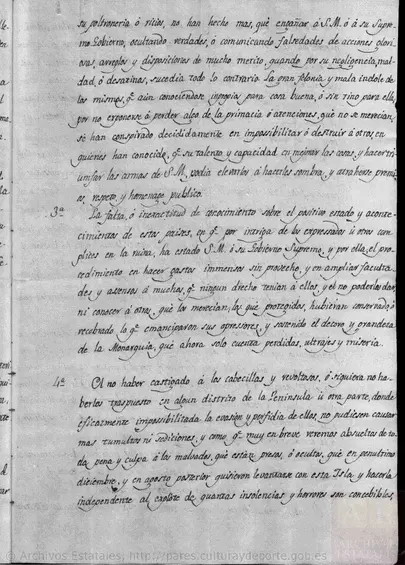 su poltroneria ó vicios, no han hecho mas, que engañar á S.M. ó á su Supre-
mo Gobierno, ocultando verdades, ó comunicando falsedades de acciones glori-
osas, arreglos y disposiciones de mucho merito, quando por su negligencia, mal-
dad, ó desatinos, sucedia todo lo contrario. La gran felonia y mala indole de
los mismos, qe. aún conociendose impropios para cosa buena, ó sin tino para ella,
por no exponerse á perder algo de la primacia ó atenciones, que no se merecian,
se han conspirado decididamente en imposibilitar ó destruir á otros, en
quienes han conocido, qe. su talento y capacidad en mejorar las cosas, y hacer tri-
unfar las armas de S.M. podia elevarlos á hacerles sombra, y atraherse premi-
os, respeto, y homenage publico.
3ª La falta, ó inexactitud de conocimiento sobre el positivo estado y aconte-
cimientos de estos paises, en qe. por intriga de los expresados ú otros com-
plices en la ruina, ha estado S.M. ó su Gobierno Supremo, y por ella el pro-
cedimiento en hacer gastos inmensos sin provecho, y en ampliar faculta-
des y ascensos á muchos, qe. ningun drecho tenian á ellos, y el no poder los dar,
ni conocer á otros, que los merecian, los que protegidos, hubieran conservado ó
recobrado lo qe. emanciparon sus agresores, y sostenido el decoro y grandeza
de la Monarquia, que ahora solo cuenta perdidas, ultrajes y miseria.
4ª El no haber castigado á los cabecillas y revoltosos, ó siquiera no ha-
berlos traspuesto en algun distrito de la Peninsula ú otra parte, donde
eficazmente imposibilitada la evasion y perfidia de ellos, no pudiesen causar
mas tumultos ni sediciones, y como qe. muy en breve veremos absueltos de to-
da pena y culpa á los malvados, que estan presos, ó ocultos, que en penultimo
diciembre, y en agosto posterior quisieron levantarse con esta Isla y hacerla
independente al capote de quantas insolencias y horrores son concebibles,
© Archivos Estatales, http://pares.culturaydeporte.gob.es